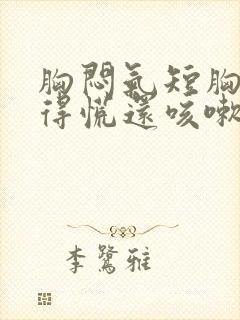 胸悶氣短胸
得慌還咳嗽
李鷺雅